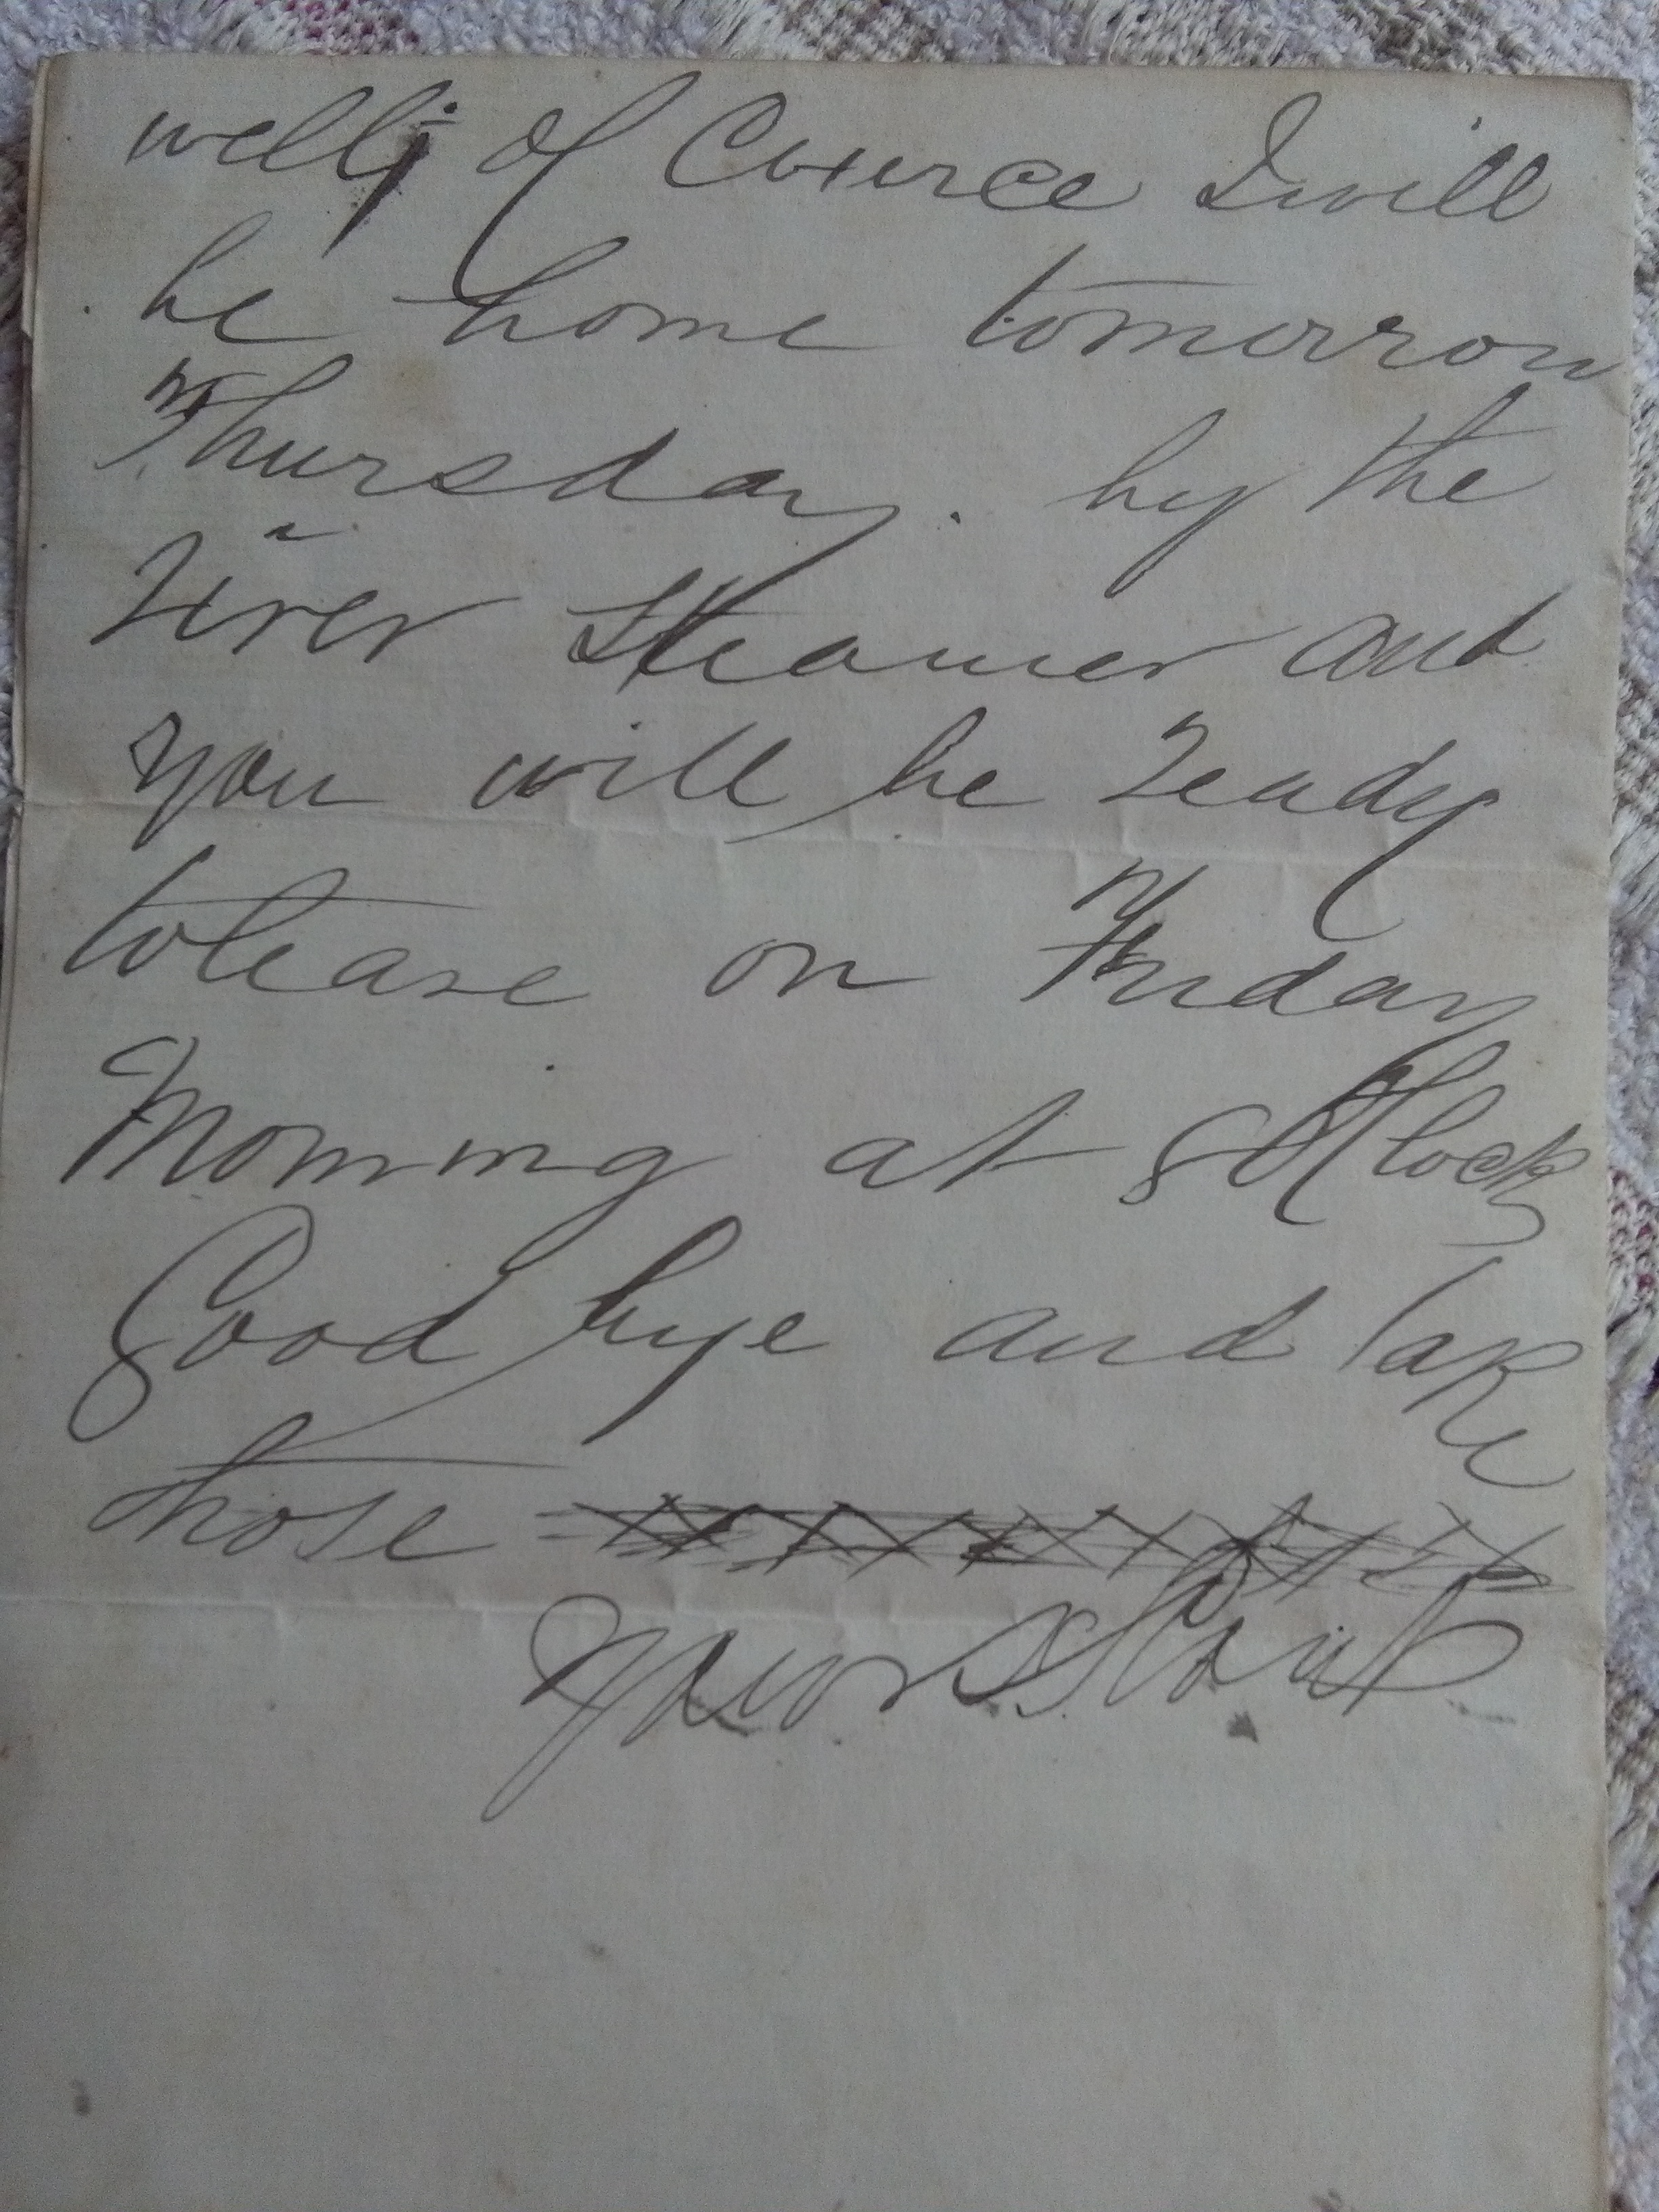 well; of Cource I will
be home tomorrow
Thursday. by the
river Steamer and
you will be ready
to leave on Friday
Morning at 8 Oclock
Good bye and take
those
Yours